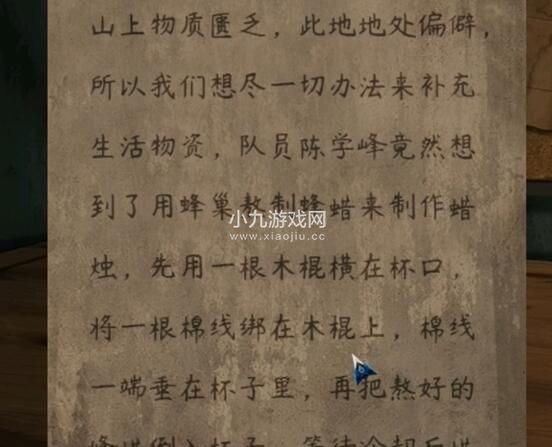 山上物质匮乏，此地地处偏僻，
所以我们想尽一切办法来补充
生活物资，队员陈学峰竟然想
到了用蜂巢熬制蜂蜡来制作蜡
小九游戏网
www.xiaojiu.cc
烛，先用一根木棍横在杯口，
将一根棉线绑在木棍上，棉线
一端垂在杯子里，再把熬好的
蜂蜡倒入杯子，等待冷却后蜡